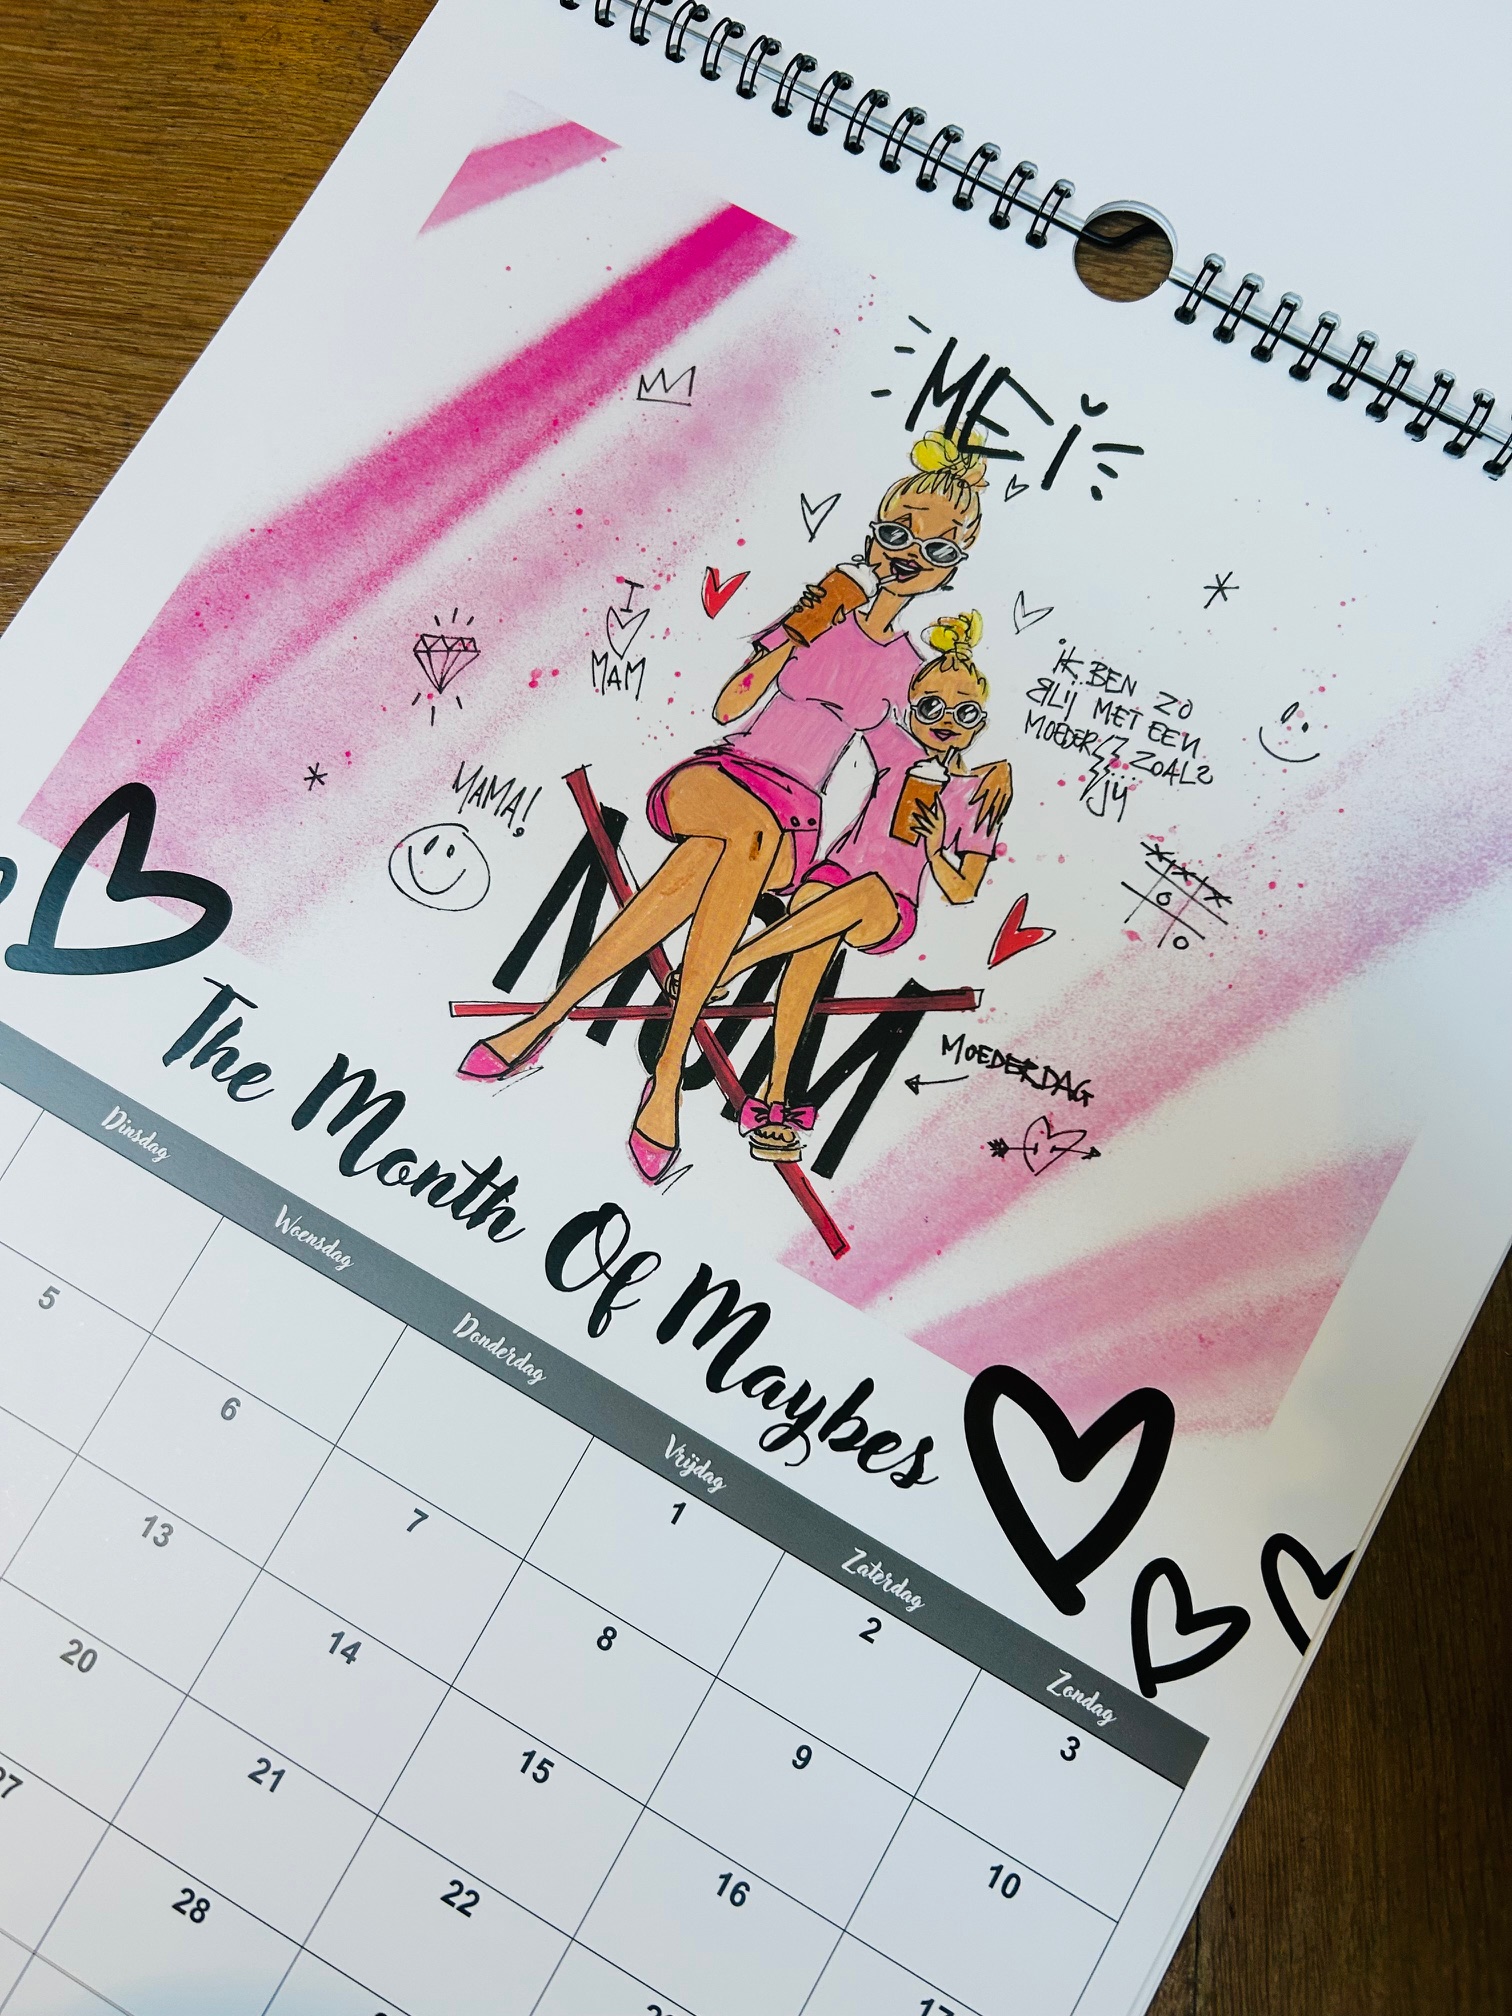 MEi
I
MAM
iK BEN ZO
BLIJ MET EEN
MOEDER ZOALS
JIJ
MAMA!
MOM
MOEDERDAG
The Month Of Maybes
Dinsdag Woensdag Donderdag Vrijdag Zaterdag Zondag
1 2 3
5 6 7 8 9 10
13 14 15 16 17
20 21 22
27 28